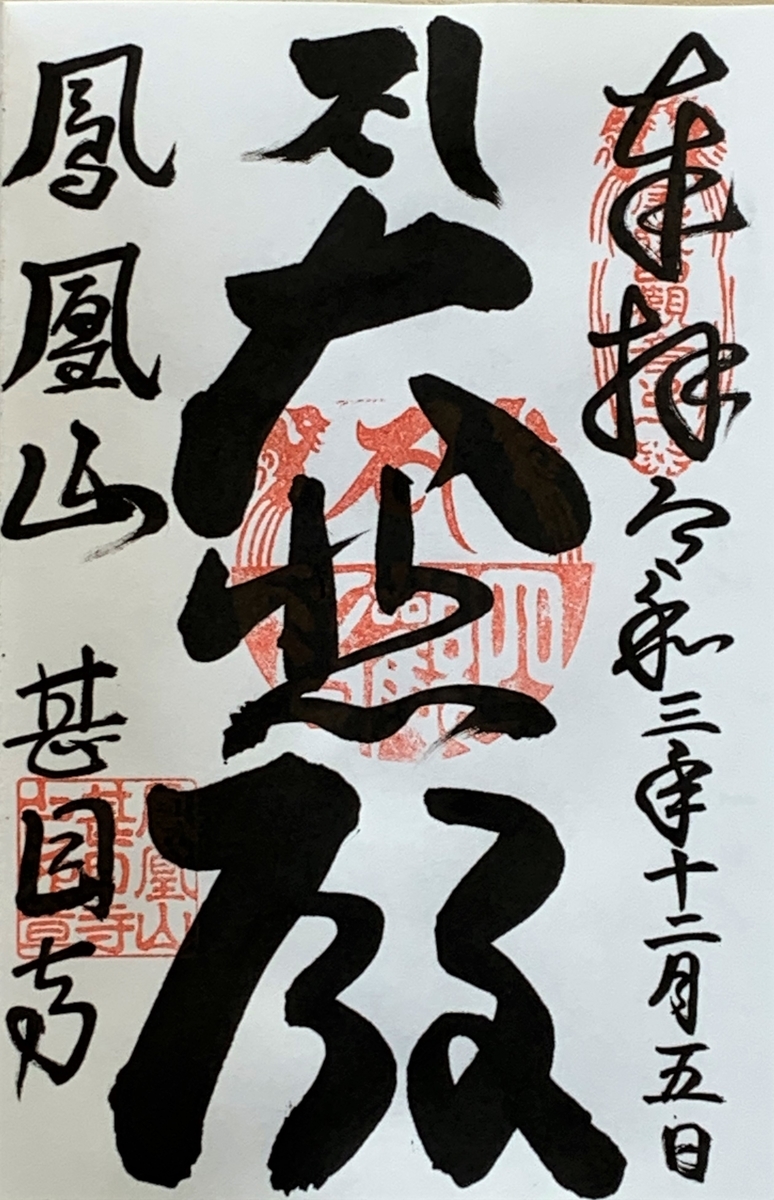 奉拝 令和三年十二月五日
大悲殿
鳳凰山 甚目寺
鳳凰山
甚目寺